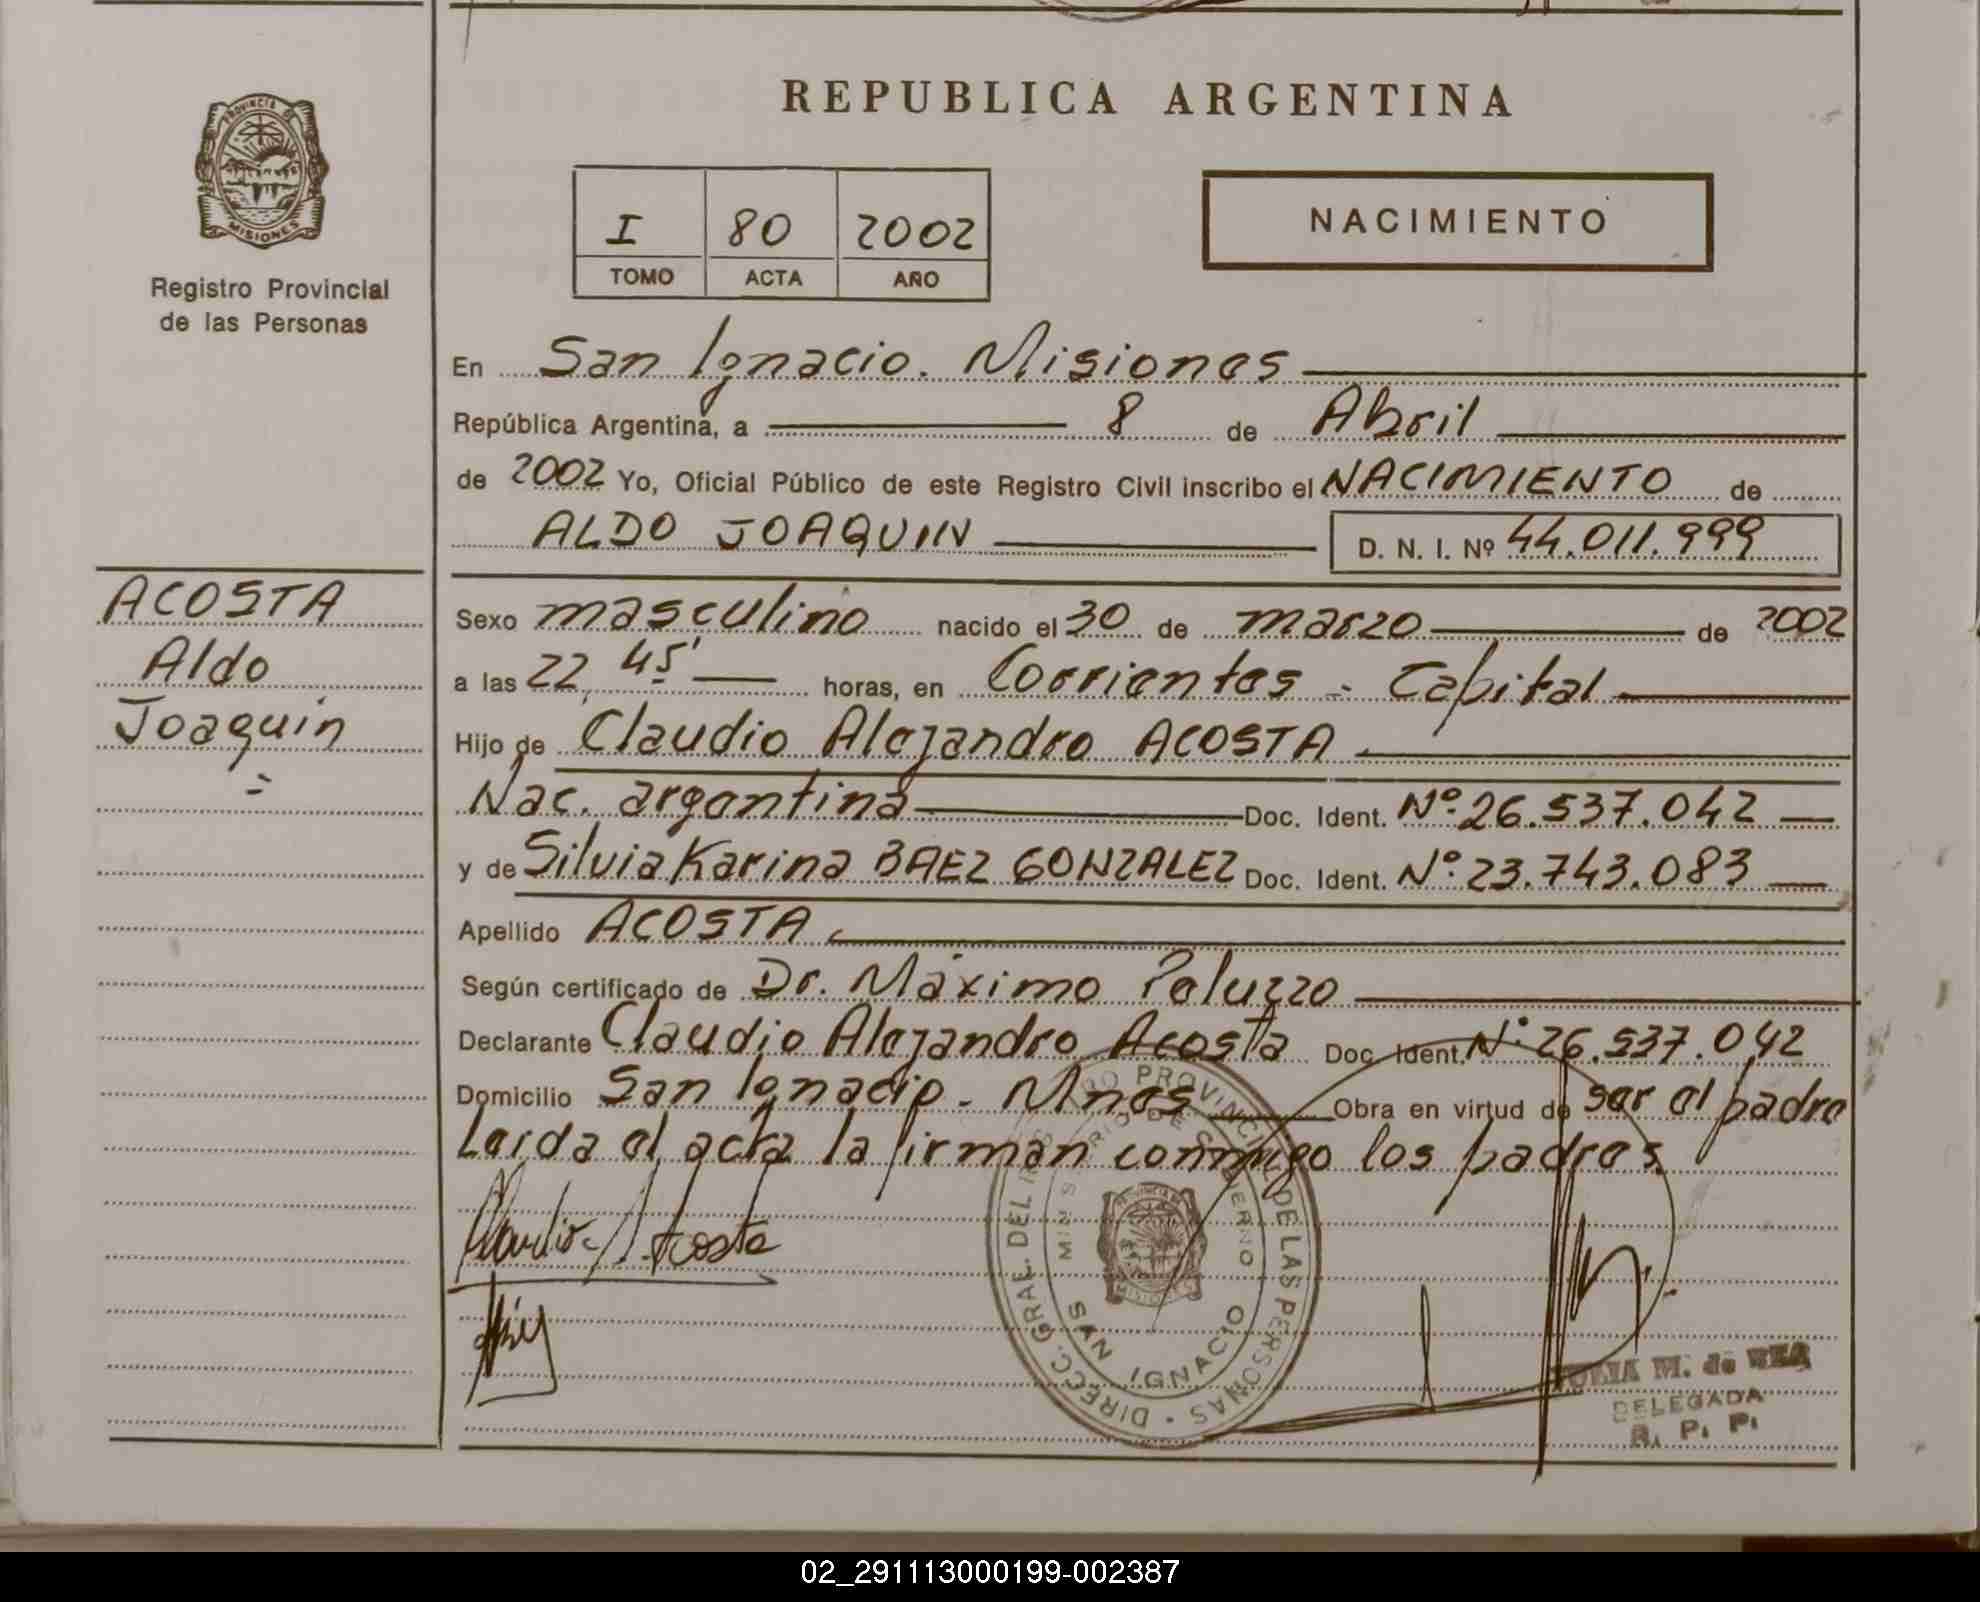 REPUBLICA ARGENTINA
PROVINCIA DE
MISIONES
Registro Provincial
de las Personas
I 80 2002
TOMO ACTA AÑO
NACIMIENTO
En San Ignacio. Misiones
República Argentina, a 8 de Abril
de 2002 Yo, Oficial Público de este Registro Civil inscribo el NACIMIENTO de
ALDO JOAQUIN D. N. I. Nº 44.011.999
ACOSTA
Aldo
Joaquin
=
Sexo masculino nacido el 30 de marzo de 2002
a las 22, 45' horas, en Corrientes - Capital
Hijo de Claudio Alejandro ACOSTA
Nac. argentina Doc. Ident. Nº 26.537.042
y de Silvia Karina BAEZ GONZALEZ Doc. Ident. Nº 23.743.083
Apellido ACOSTA
Según certificado de Dr. Máximo Peluzzo
Declarante Claudio Alejandro Acosta Doc. Ident. Nº 26.537.042
Domicilio San Ignacio - Mnes Obra en virtud de ser el padre
Leída el acta la firman conmigo los padres
Claudio A. Acosta
DIREC. GRAL. DEL REGISTRO PROVINCIAL DE LAS PERSONAS
MINISTERIO DE GOBIERNO
SAN IGNACIO
M. de
DELEGADA
R. P. P.
02_291113000199-002387